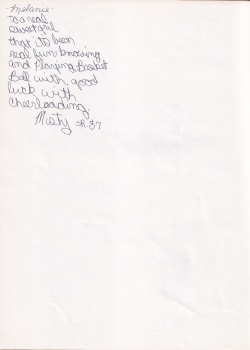 -Melanie-
To a real
sweet girl
that its been
real fun knowing
and Playing Basket
Ball with. good
luck with
cheerleading.
Misty SR. 87